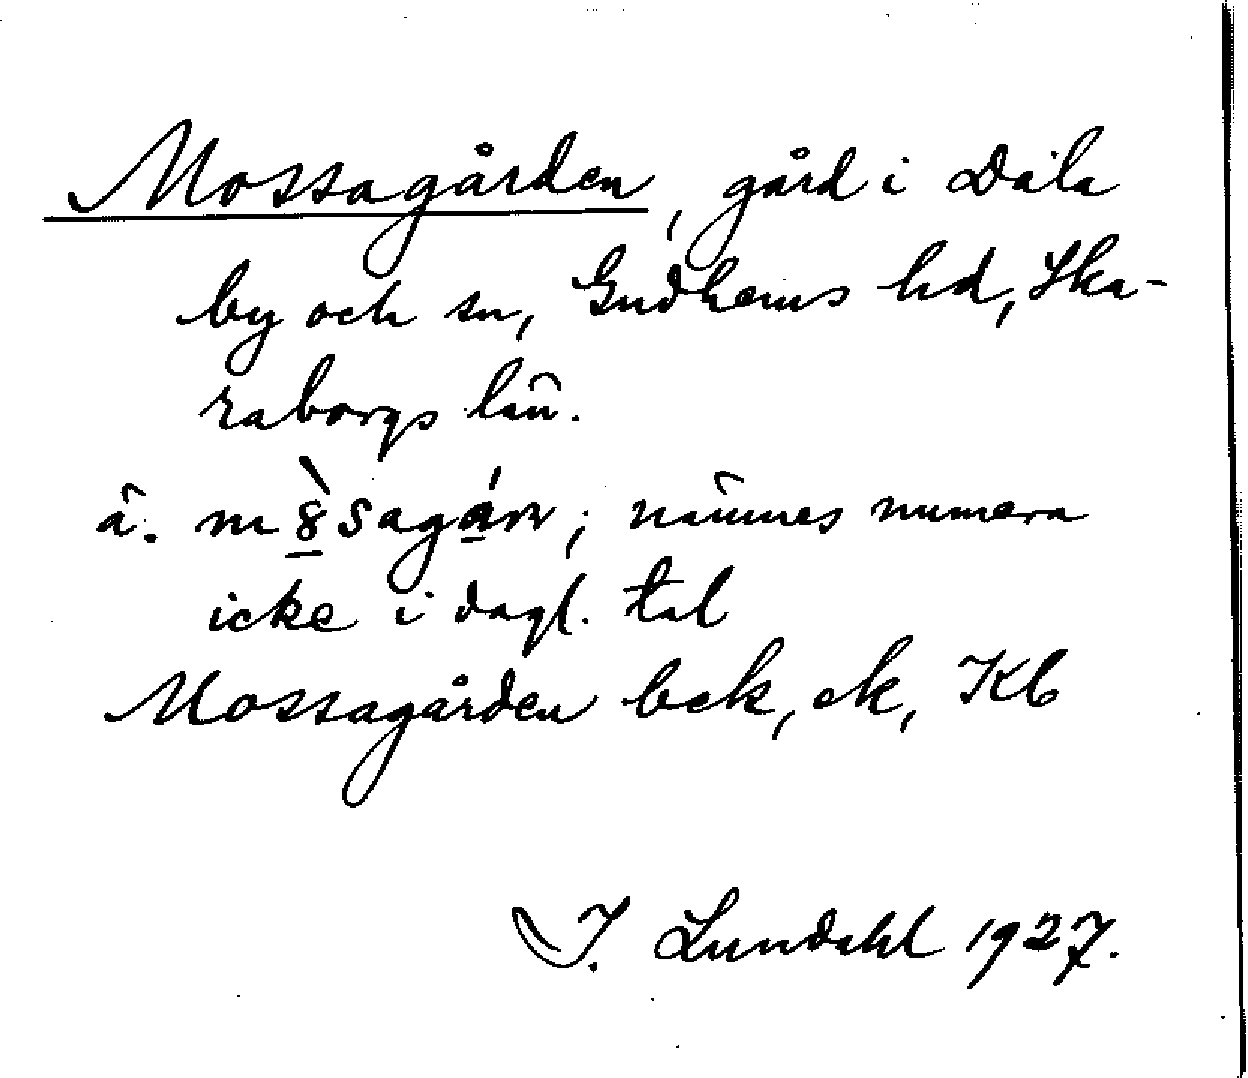 Mossagården, gård i Dala
by och sn, Gudhems hd, Ska-
raborgs län.
ä. m8̠̀sagá̠rn; nämnes numera
icke i dagl. tal
Mossagården bek, ek, Kb
I. Lundahl 1927.